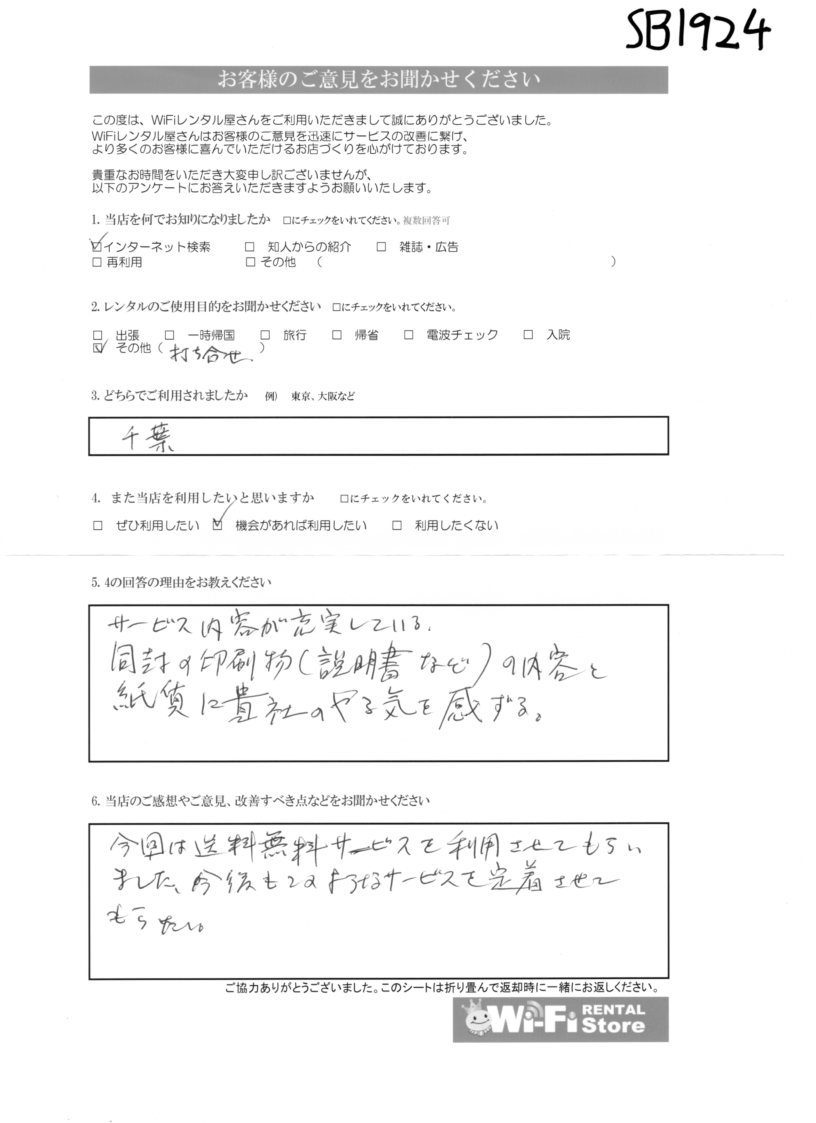 SB1924
お客様のご意見をお聞かせください
この度は、WiFiレンタル屋さんをご利用いただきまして誠にありがとうございました。
WiFiレンタル屋さんはお客様のご意見を迅速にサービスの改善に繋げ、
より多くのお客様に喜んでいただけるお店づくりを心がけております。
貴重なお時間をいただき大変申し訳ございませんが、
以下のアンケートにお答えいただきますようお願いいたします。
1. 当店を何でお知りになりましたか □にチェックをいれてください。複数回答可
☑インターネット検索 □ 知人からの紹介 □ 雑誌・広告
□ 再利用 □ その他 ( )
2. レンタルのご使用目的をお聞かせください □にチェックをいれてください。
□ 出張 □ 一時帰国 □ 旅行 □ 帰省 □ 電波チェック □ 入院
☑ その他 ( 打ち合せ. )
3. どちらでご利用されましたか 例) 東京、大阪など
千葉
4. また当店を利用したいと思いますか □にチェックをいれてください。
□ ぜひ利用したい ☑ 機会があれば利用したい □ 利用したくない
5. 4の回答の理由をお教えください
サービス内容が充実している.
同封の印刷物(説明書など)の内容と
紙質に貴社のやる気を感ずる。
6. 当店のご感想やご意見、改善すべき点などをお聞かせください
今回は送料無料サービスを利用させてもらい
ました、今後もこのようなサービスを定着させて
もらいたい。
ご協力ありがとうございました。このシートは折り畳んで返却時に一緒にお返しください。
Wi-Fi RENTAL Store